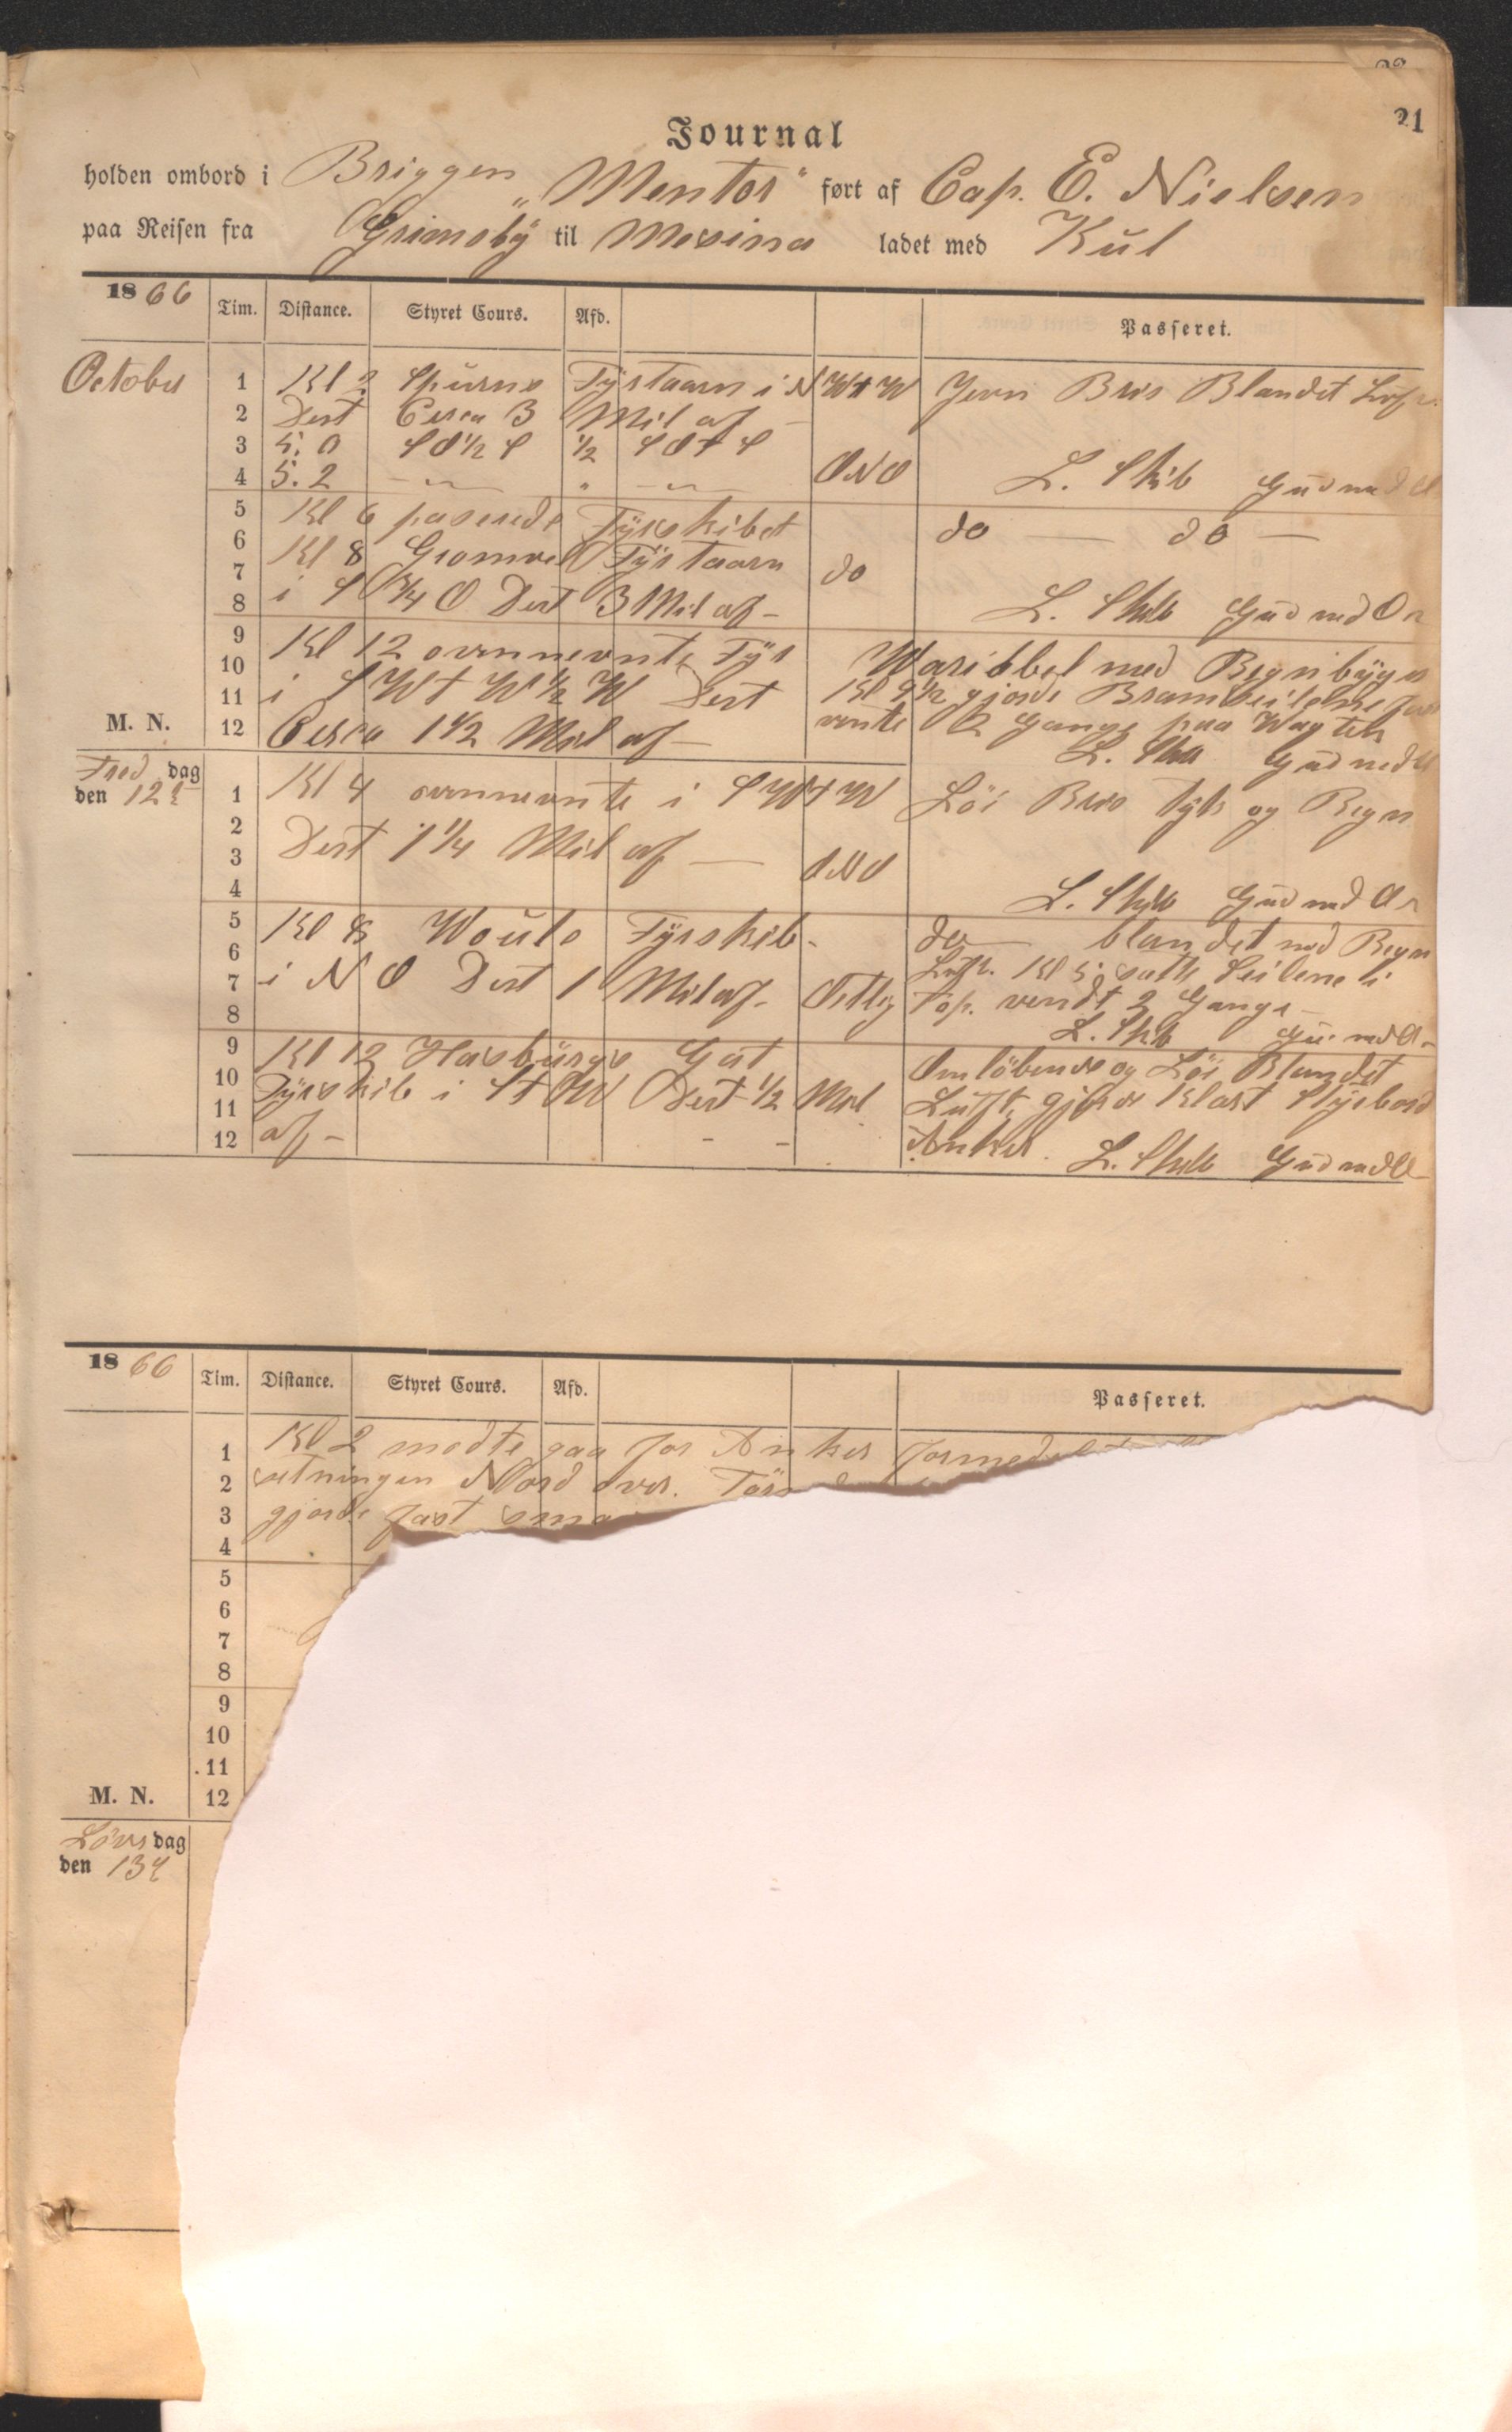 21
Journal
holden ombord i Briggen „Mentor" ført af Cap. E. Nielsen
paa Reisen fra Grimsby til Mesina ladet med Kul
1866 Tim. Distance. Styret Cours. Afd. Passeret.
October 1 Kl 2 Spurns Fyrstaarn i NWtW Jevn Bris Blandet Luft
2 Dest Cirka 3 Mil af –
3 5.0 SO½S ½ SOtS
4 5.2 – " – " – " – ONO L. Skib Gud med
5 Kl 6 paserede Fyrskibet do — do —
6
7 Kl 8 Cromer Fyrstaarn do
8 i S¾O Dest 3 Mil af – L. Skib Gud med O
9 Kl 12 ovnnevnte Fyr Wariabel med Regnbyger
10
11 i SWtW½W Dest Kl 9½ gjorde Bramseilene fast
M. N. 12 Cirka 1½ Mil af – vente 2 Gange paa Wagten
L. Skib Gud med
Freddag
den 12 1 Kl 4 ovnnevnte i SWtW Löi Bris tyk og Regn
2
3 Dest 1¼ Mil af — ONO
4 L. Skib Gud med
5 Kl 8 Would Fyrskib. do blandet med Regn
6 Luft. Kl 5 satte Seilene ti
7 i NO Dest 1 Mil af – Ostlig Top. vendt 2 Gange
8 L. Skib Gu. med
9 Kl 12 Hasburgs Gat Omlöbende og Löi Blandet
10 Fyrskib i Dest ½ Mil Luft, gjorde Klart Styrbord
11
12 af – Anker. L. Skib Gud med
1866 Tim. Distance. Styret Cours. Afd. Passeret.
1 Kl 2 modte gaa for Anker formedelst
2 setningen Nord over.
3 gjorde fast
4
5
6
7
8
9
10
11
M. N. 12
Löverdag
den 13